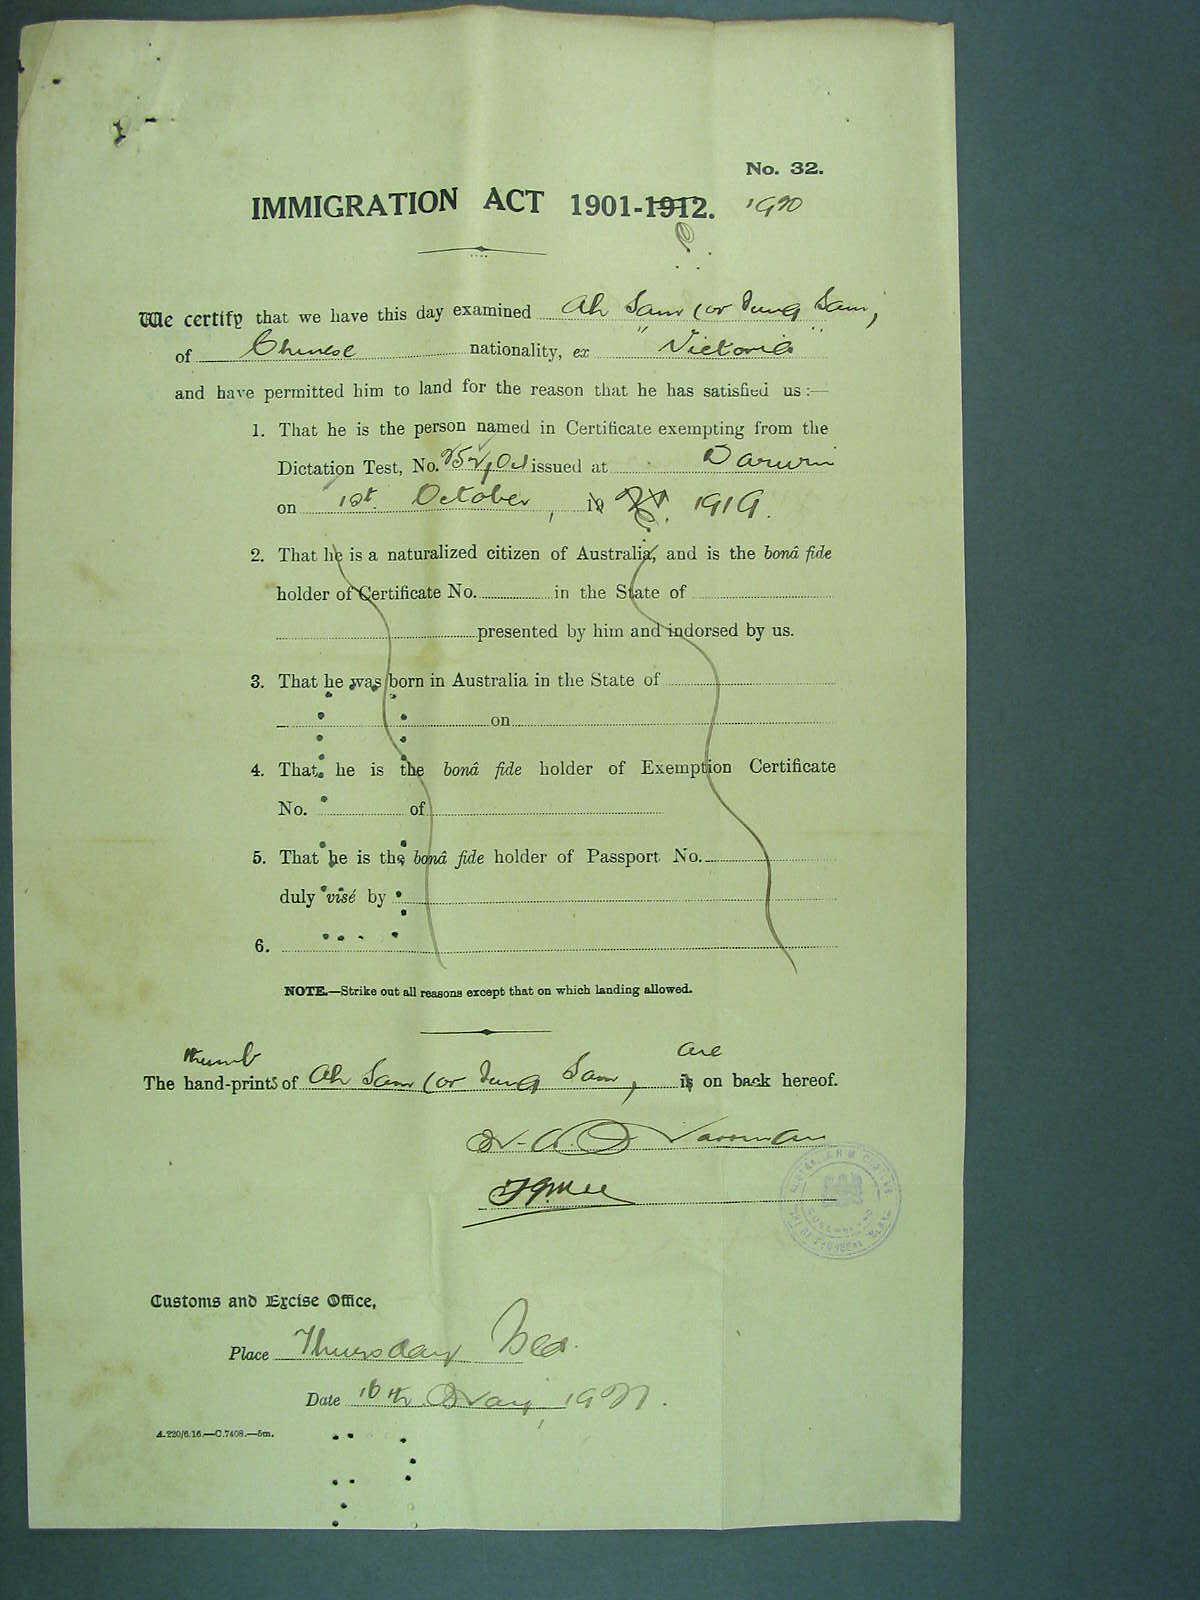 No. 32.
IMMIGRATION ACT 1901-1912. 1920
We certify that we have this day examined Ah Sam (or Sam,
of Chinese nationality, ex "Victoria"
and have permitted him to land for the reason that he has satisfied us :—
1. That he is the person named in Certificate exempting from the
Dictation Test, No. issued at Darwin
on 1st October, 19 1919.
2. That he is a naturalized citizen of Australia, and is the bonâ fide
holder of Certificate No. in the State of
presented by him and indorsed by us.
3. That he was born in Australia in the State of
on
4. That he is the bonâ fide holder of Exemption Certificate
No. of
5. That he is the bonâ fide holder of Passport No.
duly visé by
6.
NOTE.—Strike out all reasons except that on which landing allowed.
thumb are
The hand-prints of Ah Sam (or Sam, is on back hereof.
Customs and Excise Office,
Place Thursday Isld.
Date 16th May, 1921.
A.220/6.16.—C.7408.—5m.